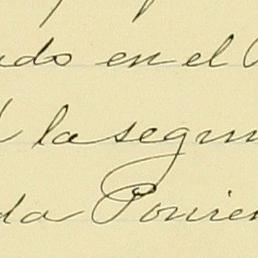 ado en el
la segun
da Ponien